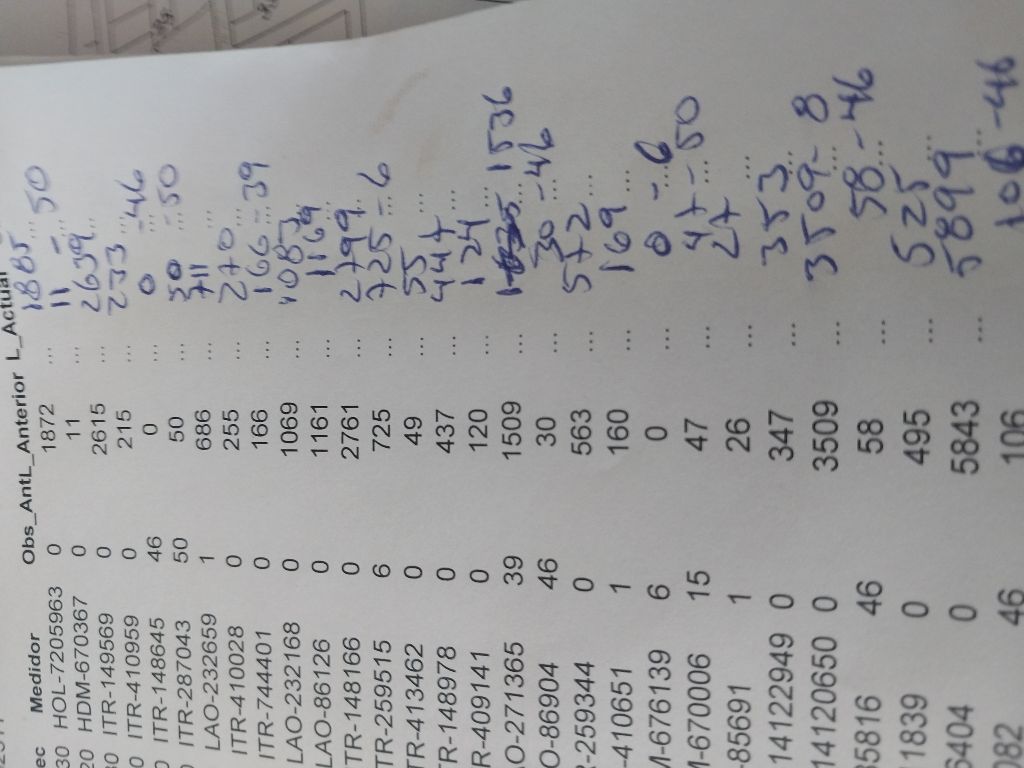 ec Medidor Obs_AntL_Anterior L_Actual
30 HOL-7205963 0 1872 ... 1885
20 HDM-670367 0 11 ... 11 - 50
0 ITR-149569 0 2615 ... 2639
0 ITR-410959 0 215 ... 233
0 ITR-148645 46 0 ... 0 - 46
ITR-287043 50 50 ... 50 - 50
LAO-232659 1 686 ... 711
ITR-410028 0 255 ... 270
ITR-744401 0 166 ... 166 - 39
LAO-232168 0 1069 ... 1083
LAO-86126 0 1161 ... 1169
TR-148166 0 2761 ... 2799
TR-259515 6 725 ... 725 - 6
TR-413462 0 49 ... 55
TR-148978 0 437 ... 447
R-409141 0 120 ... 124
O-271365 39 1509 ... 1536
O-86904 46 30 ... 30 - 46
-2593444 0 563 ... 572
-410651 1 160 ... 169
M-676139 6 0 ... 0 - 6
M-670006 15 47 ... 47 - 50
-85691 1 26 ... 27
14122949 0 347 ... 353
14120650 0 3509 ... 3509 - 8
35816 46 58 ... 58 - 46
11839 0 495 ... 525
6404 0 5843 ... 5899
082 46 106 106 - 46